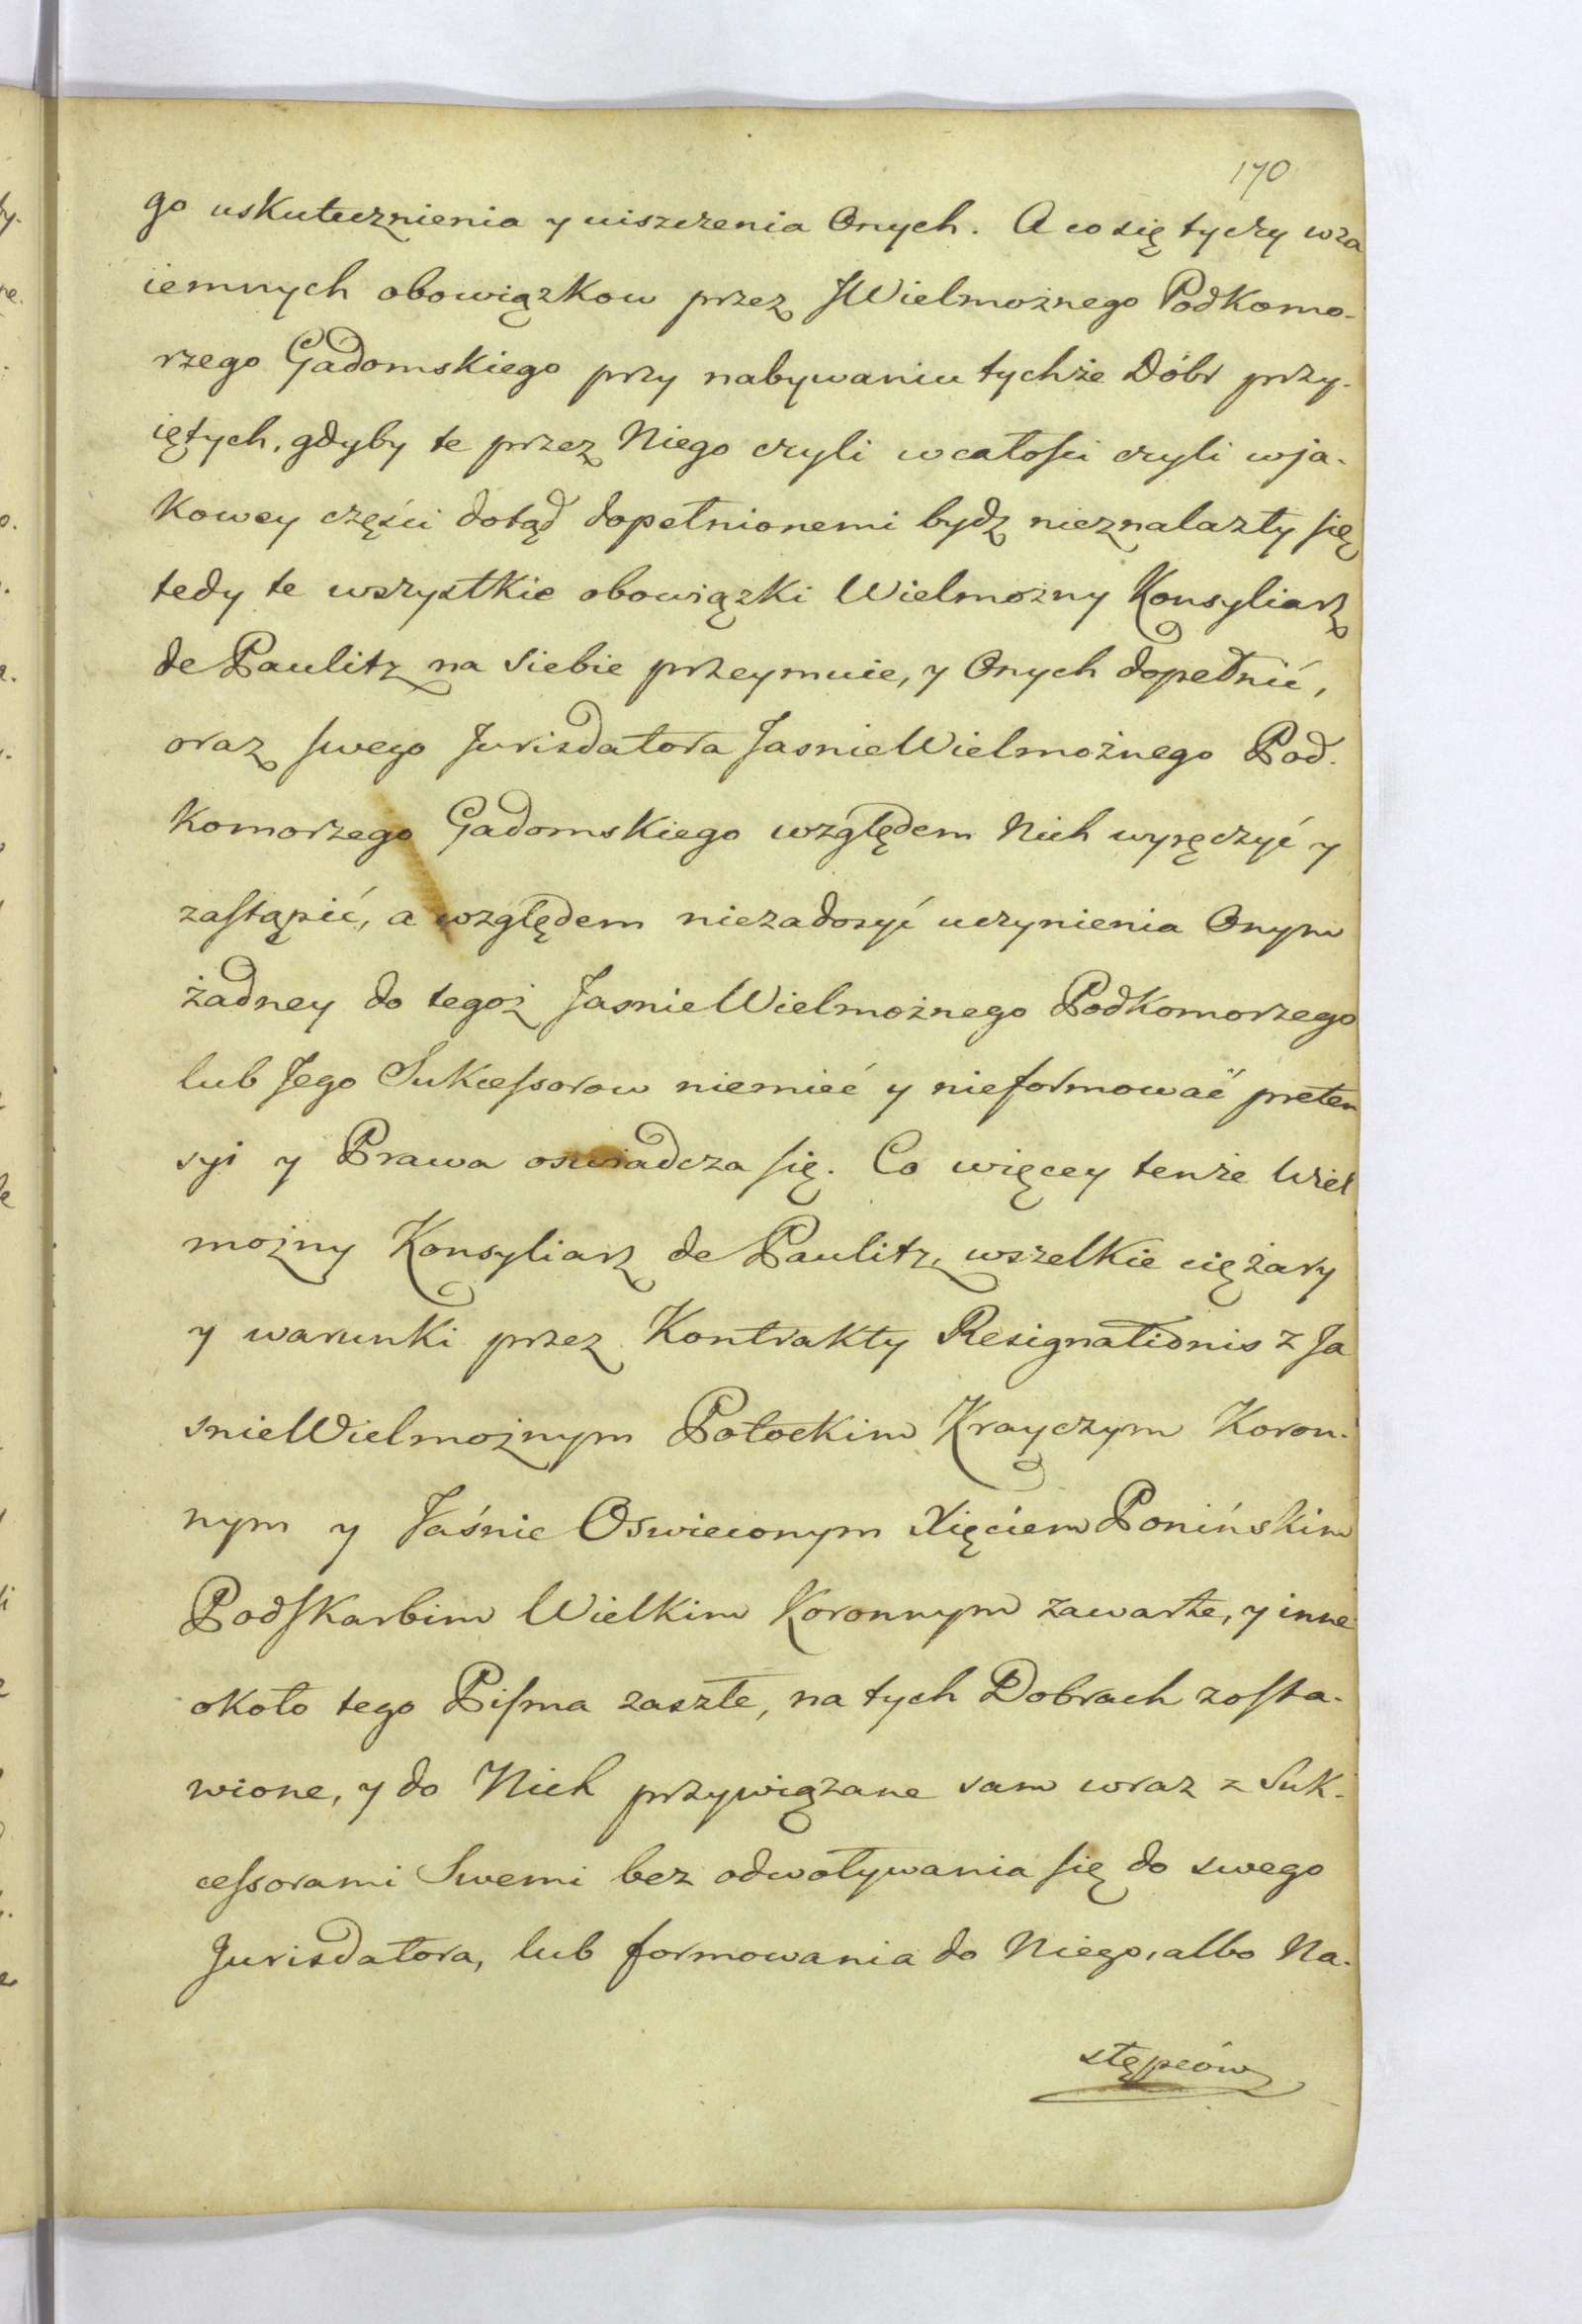 170
go uskutecznienia y uiszczenia Onych. A co się tyczy wza
iemnych obowiązkow przez JWielmożnego Podkomo-
rzego Gadomskiego przy nabywaniu tychże Dóbr przy-
iętych, gdyby te przez Niego czyli w całości czyli w ja-
kowey części dotąd dopełnionemi bydz nieznalazły się
tedy te wszystkie obowiązki Wielmozny Konsyliarz
de Paulitz na siebie przeymuie, y Onych dopełnić,
oraz swego Jurisdatora JasnieWielmożnego Pod-
komorzego Gadomskiego względem Nich wyręczyć y
zastąpić, a względem niezadosyć uczynienia Onym
żadney do tegoż JasnieWielmożnego Podkomorzego
lub Jego Sukcessorow niemieć y nieformować preten
syi y Prawa oswiadcza się. Co więcey tenże Wiel
możny Konsyliarz de Paulitz, wszelkie ciężary
y warunki przez Kontrakty Resignationis z Ja
snieWielmożnym Potockim Krayczym Koron-
nym y Jaśnie Oswieconym Xięciem Ponińskim
Podskarbim Wielkim Koronnym zawarte, y inne
około tego Pisma zaszłe, na tych Dobrach zosta-
wione, y do Nich przywiązane sam wraz z Suk-
cessorami Swemi bez odwoływania się do swego
Jurisdatora, lub formowania do Niego, albo Na-
stępców